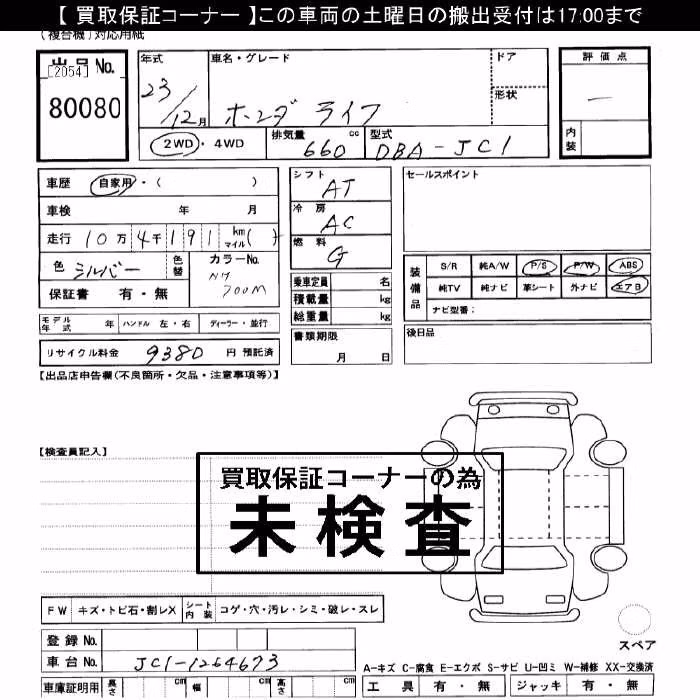 【 買取保証コーナー 】この車両の土曜日の搬出受付は17:00まで
(複合機)対応用紙
出品 No.
[2054]
80080
年式 23/12月
車名・グレード ホンダ ライフ
ドア
形状
評価点
—
内装
2WD ・ 4WD
排気量 660 cc
型式 DBA-JC1
車歴 自家用・( )
車検 年 月
走行 10万 4千 1 9 1 km マイル( )
色 シルバー 色替
カラーNo. NH 700M
保証書 有・無
シフト AT
冷房 AC
燃料 G
乗車定員 名
積載量 kg
総重量 kg
書類期限 月 日
セールスポイント
装備品
S/R 純A/W P/S P/W ABS
純TV 純ナビ 革シート 外ナビ エアB
ナビ型番:
後日品
モデル年式 年 ハンドル 左・右 ディーラー・並行
リサイクル料金 9380 円 預託済
【出品店申告欄(不良箇所・欠品・注意事項等)】
【検査員記入】
買取保証コーナーの為
未検査
FW キズ・トビ石・割レX シート内装 コゲ・穴・汚レ・シミ・破レ・スレ
登録 No.
車台 No. JC1-1264673
車庫証明用 長さ cm 幅 cm 高さ cm
スペア
A-キズ C-腐食 E-エクボ S-サビ U-凹ミ W-補修 XX-交換済
工具 有・無 ジャッキ 有・無